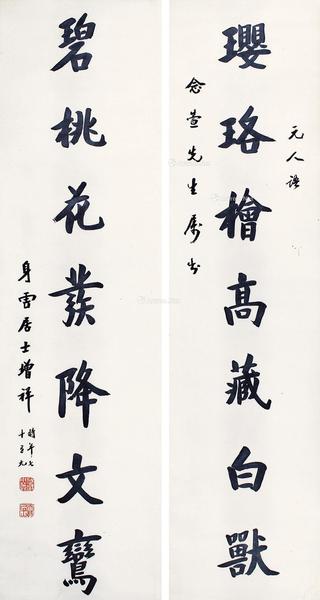 元人語
瓔珞檜高藏白獸
念萱先生屬書
碧桃花發降文鸞
身雲居士增祥
時年七十有九